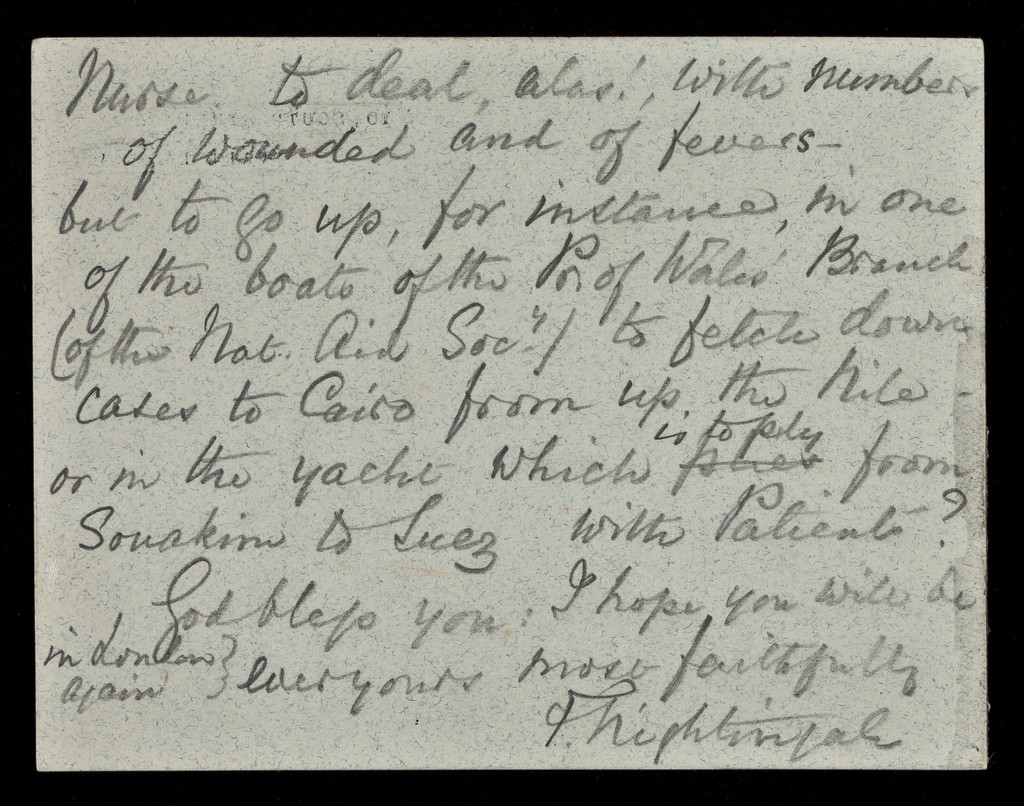 Nurse. to deal, alas!, with numbers
of wounded and of fevers -
but to go up, for instance, in one
of the boats of the Pr. of Wales' Branch
(of the Nat. Aid Socy.) to fetch down
cases to Cairo from up the Nile -
is to ply
or in the yacht which from
Souakim to Suez with Patients?
God bless you: I hope you will be
in London again } ever yours most faithfully
F. Nightingale